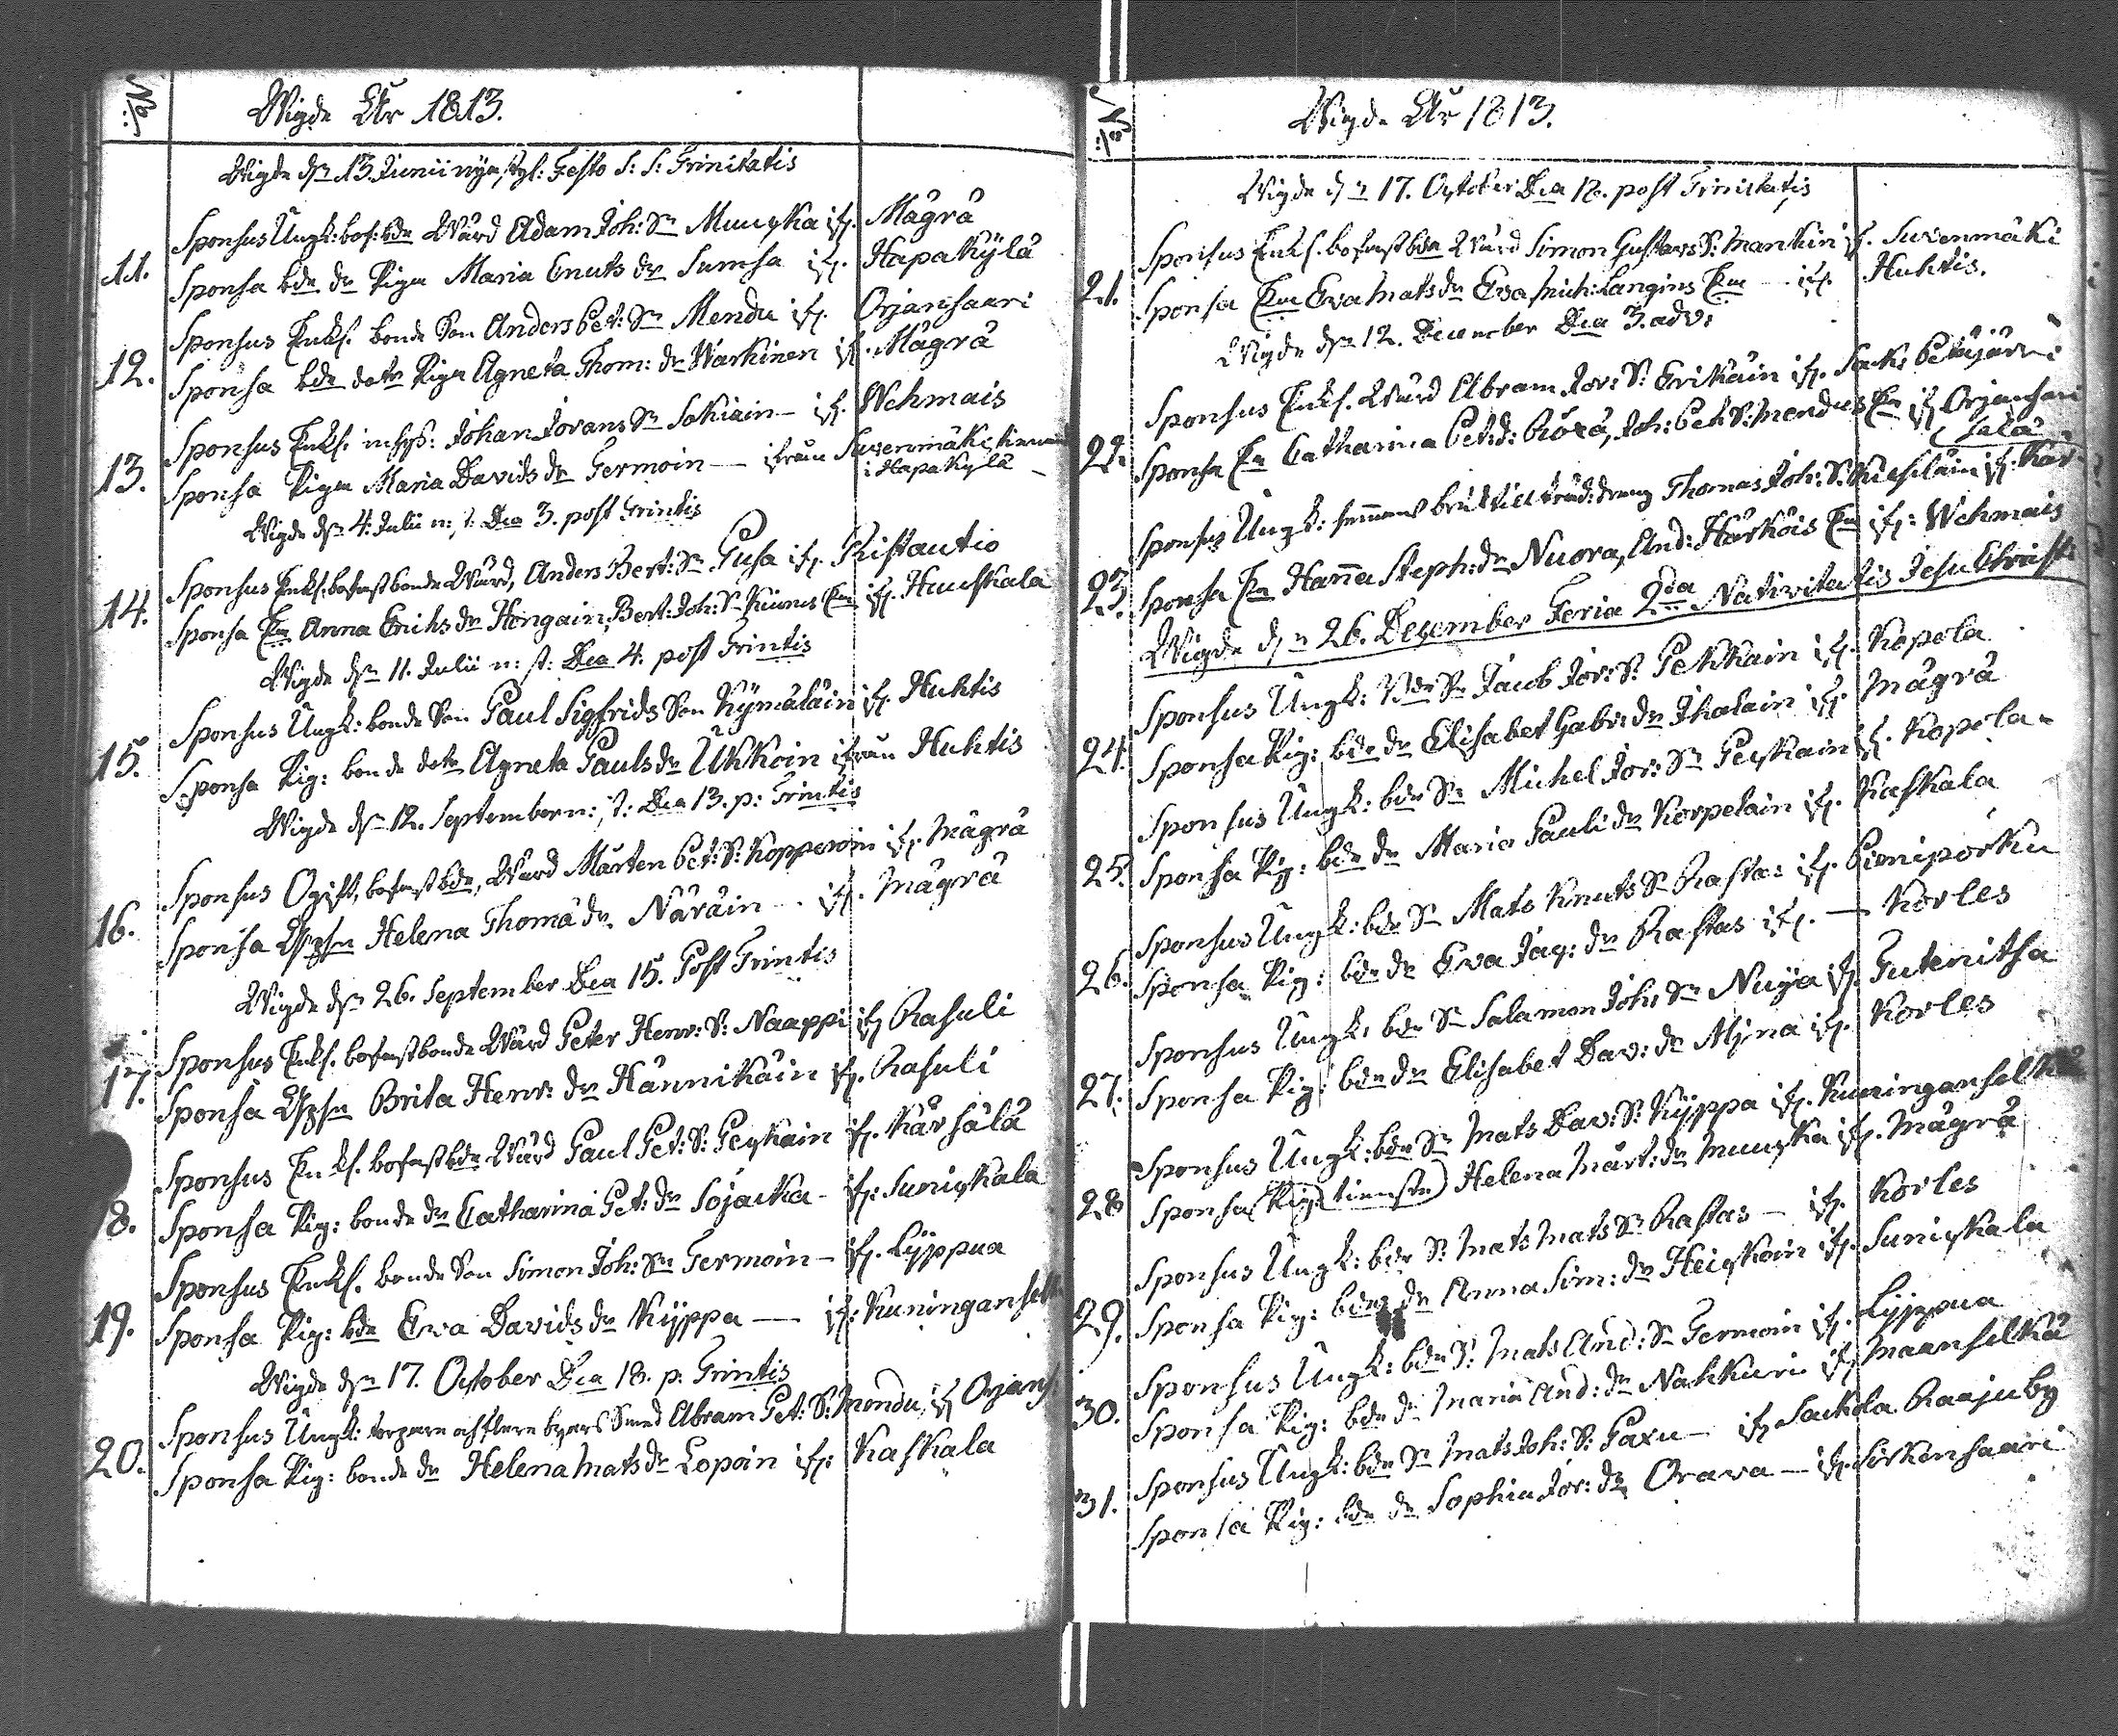 No:
Wigde År 1813.
Wigde d:n 13. Junii nya styl: Festo S: S: Trinitatis
11.
Sponsus Ungk: bof: bde Wärd Adam Joh: Sn Muuska ifr. Mägrä
Sponsa bde dr Piga Maria Cnuts dr Sumsa ifr. Hapakÿlä
12.
Sponsus Enkl. bonde Son Anders Pet: Sn Mendu ifr. Orjansaari
Sponsa bde dotr Piga Agneta Thom: dr Warkinen if. Mägrä
13.
Sponsus Enkl. inhys: Johan Jörans Sn Sokiain – if. Wehmais
Sponsa Piga Maria Davids dr Termoin — ifrån Suvenmäki,
i Hapakylä
Wigde d:n 4. Julii n: s: Dca 3. post Trintis
14.
Sponsus Enkl. bofast bonde Wärd, Anders Bert: Sn Pusa ifr. Ristautio
Sponsa En Anna Erichs dr Hengain, Bert: Joh: Sn Kiurus En if. Hauskala
Wigde d:n 11. Julii n: st: Dca 4. post Trintis
15.
Sponsus Ungk: bonde Son Paul Sigfrids Son Kÿmäläin if. Huhtis
Sponsa Pig: bonde dotr Agneta Pauls dr Ukkoin ifrån Huhtis
Wigde d:n 12. September n: s: Dca 13. p: Trintis
16.
Sponsus Ogift, bofast bde, Wärd Mårten Pet: S: Kopperoin if. Mägrä
Sponsa Helena Thomä dr. Näräin – if. Mägrä
Wigde d:n 26. September Dca 15. Post Trintis
17.
Sponsus Enkl. bofast bonde Wärd Peter Henr: S: Naappi if. Rasuli
Sponsa Brita Henr: dr Hännikäin if. Rasuli
18.
Sponsus Enkl. bofast bde Wärd Paul Pet: S: Peskain if. Kärsälä
Sponsa Pig: bonde dr Catharina Pet: dr Sojacka – if: Suniskala
19.
Sponsus Enkl. bonde Son Simon Joh: Sn Termoin – if. Lÿppua
Sponsa Pig: bde Eva Davids dr Kÿppa — if: Kuninganselkä
Wigde d:n 17. October Dca 18. p. Trintis
20.
Sponsus Ungk: torpare och flere byars Smed Abram Pet: S: Mendu, if Orjans:
Sponsa Pig: bonde dr Helena Mats dr Lopoin if: Kaskala
No:
Wigde År 1813.
Wigde d:n 17. October Dca 18. post Trinitatis
21.
Sponsus Enkl. bofast bde Wärd Simon Gustavs S: Mankin if. Suvenmäki
Sponsa En Eva Mats dr Eva Mich: Langins En – if. Huhtis.
Wigde d:n 12. December Dca 3. adv:
22.
Sponsus Enkl. Wärd Abram Jör: S: Erikäin if. Sack: Petäjärvi
Sponsa En Catharina Pet: d: Röxä, Joh: Pet: S: Mendus En if Orjansari
23.
Sponsus Ungk: dräng Thomas Joh: S: Kiesiläin if: Kär-
(sälä
Sponsa En Hanna Steph: dr Nuora, And: Härköis En if: Wehmais
Wigde d:n 26. December Feria 2da Nativitatis Jesu Christi
24.
Sponsus Ungk: bde Sn Jacob Jör: S: Pekkain if. Kopola
Sponsa Pig: bde dr Elisabet Gabr: dr Ihalain if. Mägrä
25.
Sponsus Ungk: bde Sn Michel Jör: Sn Peskain if. Kopola
Sponsa Pig: bde dr Maria Pauli dr Korpelain if. Kaskala
26.
Sponsus Ungk: bde Sn Mats Knuts S Rastas if. Pieniporkku
Sponsa Pig: bde dr Eva Jag: dr Rastas if. — Korles
27.
Sponsus Ungk: bde Sn Salamon Joh: Sn Nuija if. Gutenitsa
Sponsa Pig: bde dr Elisabet Dav: dr Myna if. Korles
28
Sponsus Ungk: bde Sn Mats Dav: S: Kÿppa if. Kuninganselkä
Sponsa (Pig: tienste) Helena Mårt: dr Muuska if. Mägrä
29.
Sponsus Ungk: bde S: Mats Mats Sn Rastas – if. Korles
Sponsa Pig: bde dr Anna Sim: dr Heiskain if. Suniskala
30.
Sponsus Ungk: bde S: Mats And: Sn Termoin if. Lÿppua
Sponsa Pig: bde dr Maria And: dr Nahkuri if Maanselkä
31.
Sponsus Ungk: bde Sn Mats Joh: S: Paxu – if Sackola Raajuby
Sponsa Pig: bde dr Sophia Jör: dr Orava — if. Sirkensaari